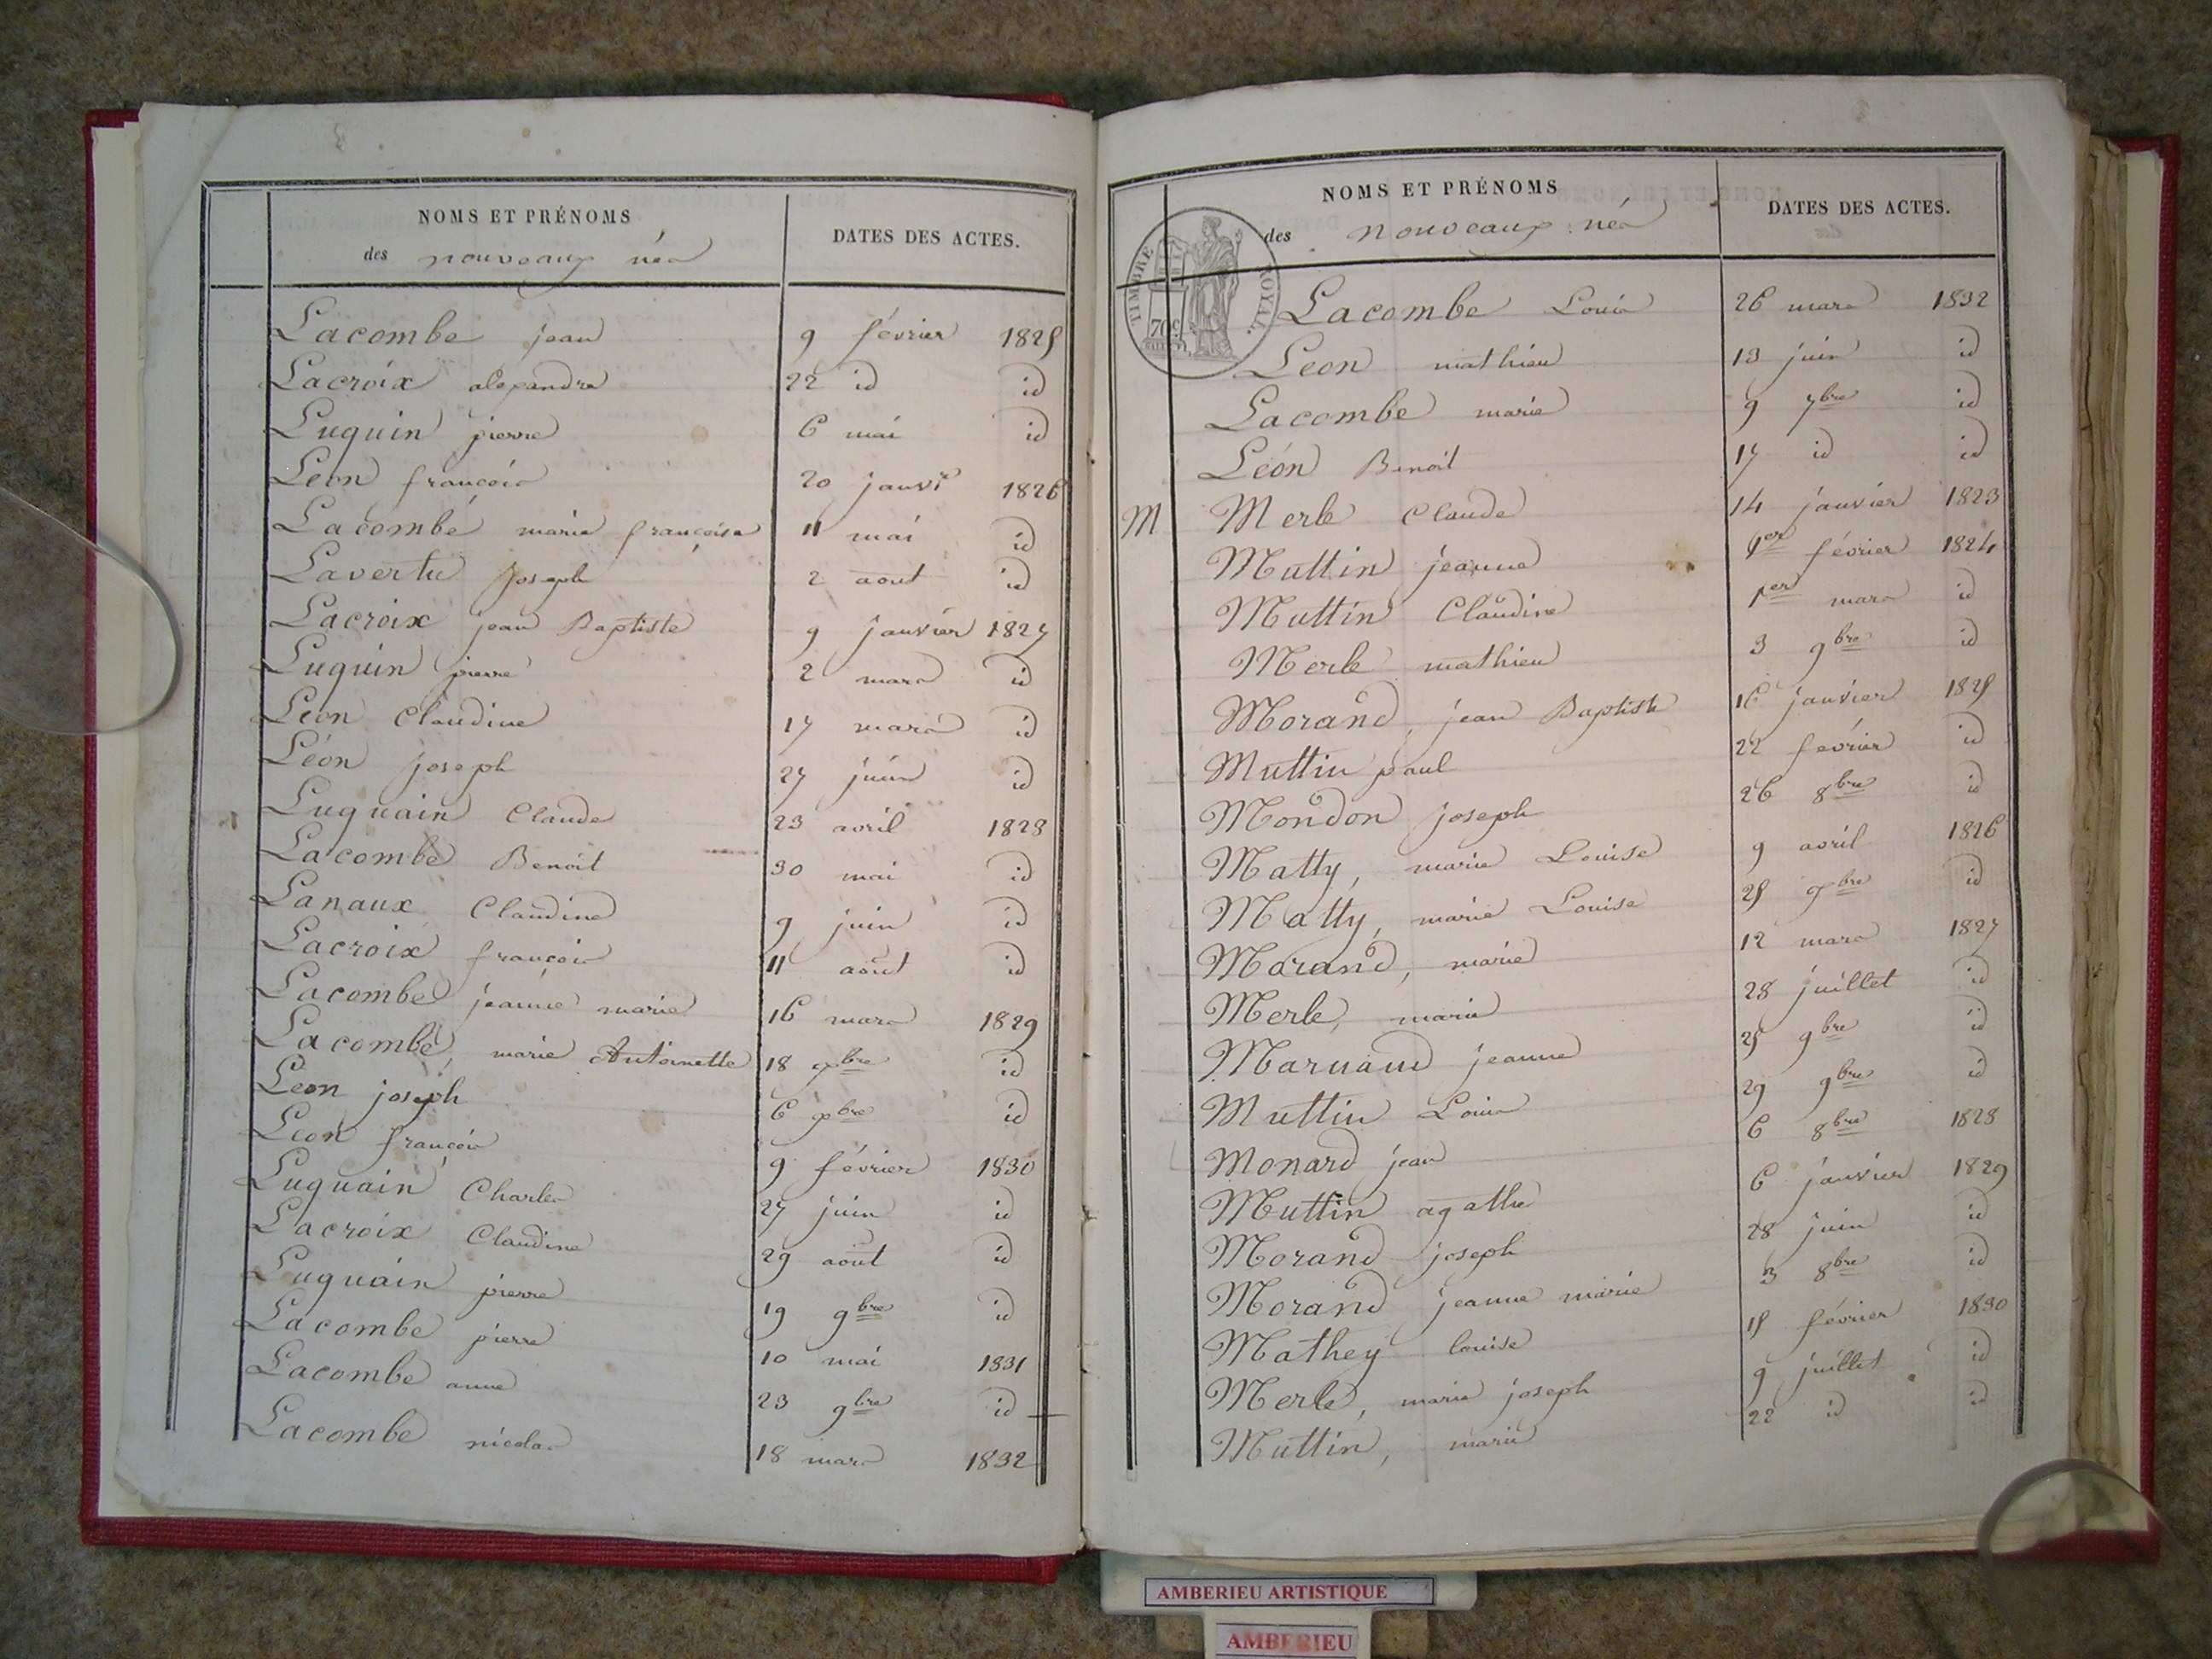 NOMS ET PRÉNOMS
des nouveaux nés
DATES DES ACTES.
Lacombe jean 9 février 1825
Lacroix alexandre 22 id id
Luquin pierre 6 mai id
Leon françois 20 janvr 1826
Lacombe marie françoise 11 mai id
Lavertu joseph 2 aout id
Lacroix jean Baptiste 9 janvier 1827
Luquin pierre 2 mars id
Leon Claudine 17 mars id
Léon joseph 27 juin id
Luquain Claude 23 avril 1828
Lacombe Benoit 30 mai id
Lanaux Claudine 9 juin id
Lacroix françois 11 août id
Lacombe jeanne marie 16 mars 1829
Lacombe, marie Antoinette 18 9bre id
Leon joseph 6 xbre id
Leon françois 9 février 1830
Luquain Charles 27 juin id
Lacroix Claudine 29 aout id
Luquain pierre 19 9bre id
Lacombe pierre 10 mai 1831
Lacombe anne 23 9bre id
Lacombe nicolas 18 mars 1832
NOMS ET PRÉNOMS
des nouveaux nés
DATES DES ACTES.
TIMBRE ROYAL.
70c
Lacombe Louis 26 mars 1832
Leon mathieu 13 juin id
Lacombe marie 9 7bre id
Léon Benoit 17 id id
M Merle Claude 14 janvier 1823
Muttin jeanne 1er février 1824
Muttin Claudine 1er mars id
Merle mathieu 3 9bre id
Morand, jean Baptiste 16 janvier 1825
Muttin paul 22 février id
Mondon joseph 26 8bre id
Matty, marie Louise 9 avril 1826
Matty, marie Louise 25 9bre id
Morand, marie 12 mars 1827
Merle, marie 28 juillet id
Maruand jeanne 25 9bre id
Muttin Louis 29 9bre id
Monard jean 6 8bre 1828
Muttin agathe 6 janvier 1829
Morand joseph 28 juin id
Morand jeanne marie 3 8bre id
Mathey louise 15 février 1830
Merle, marie joseph 9 juillet id
Muttin, marie 22 id id
AMBERIEU ARTISTIQUE
AMBERIEU